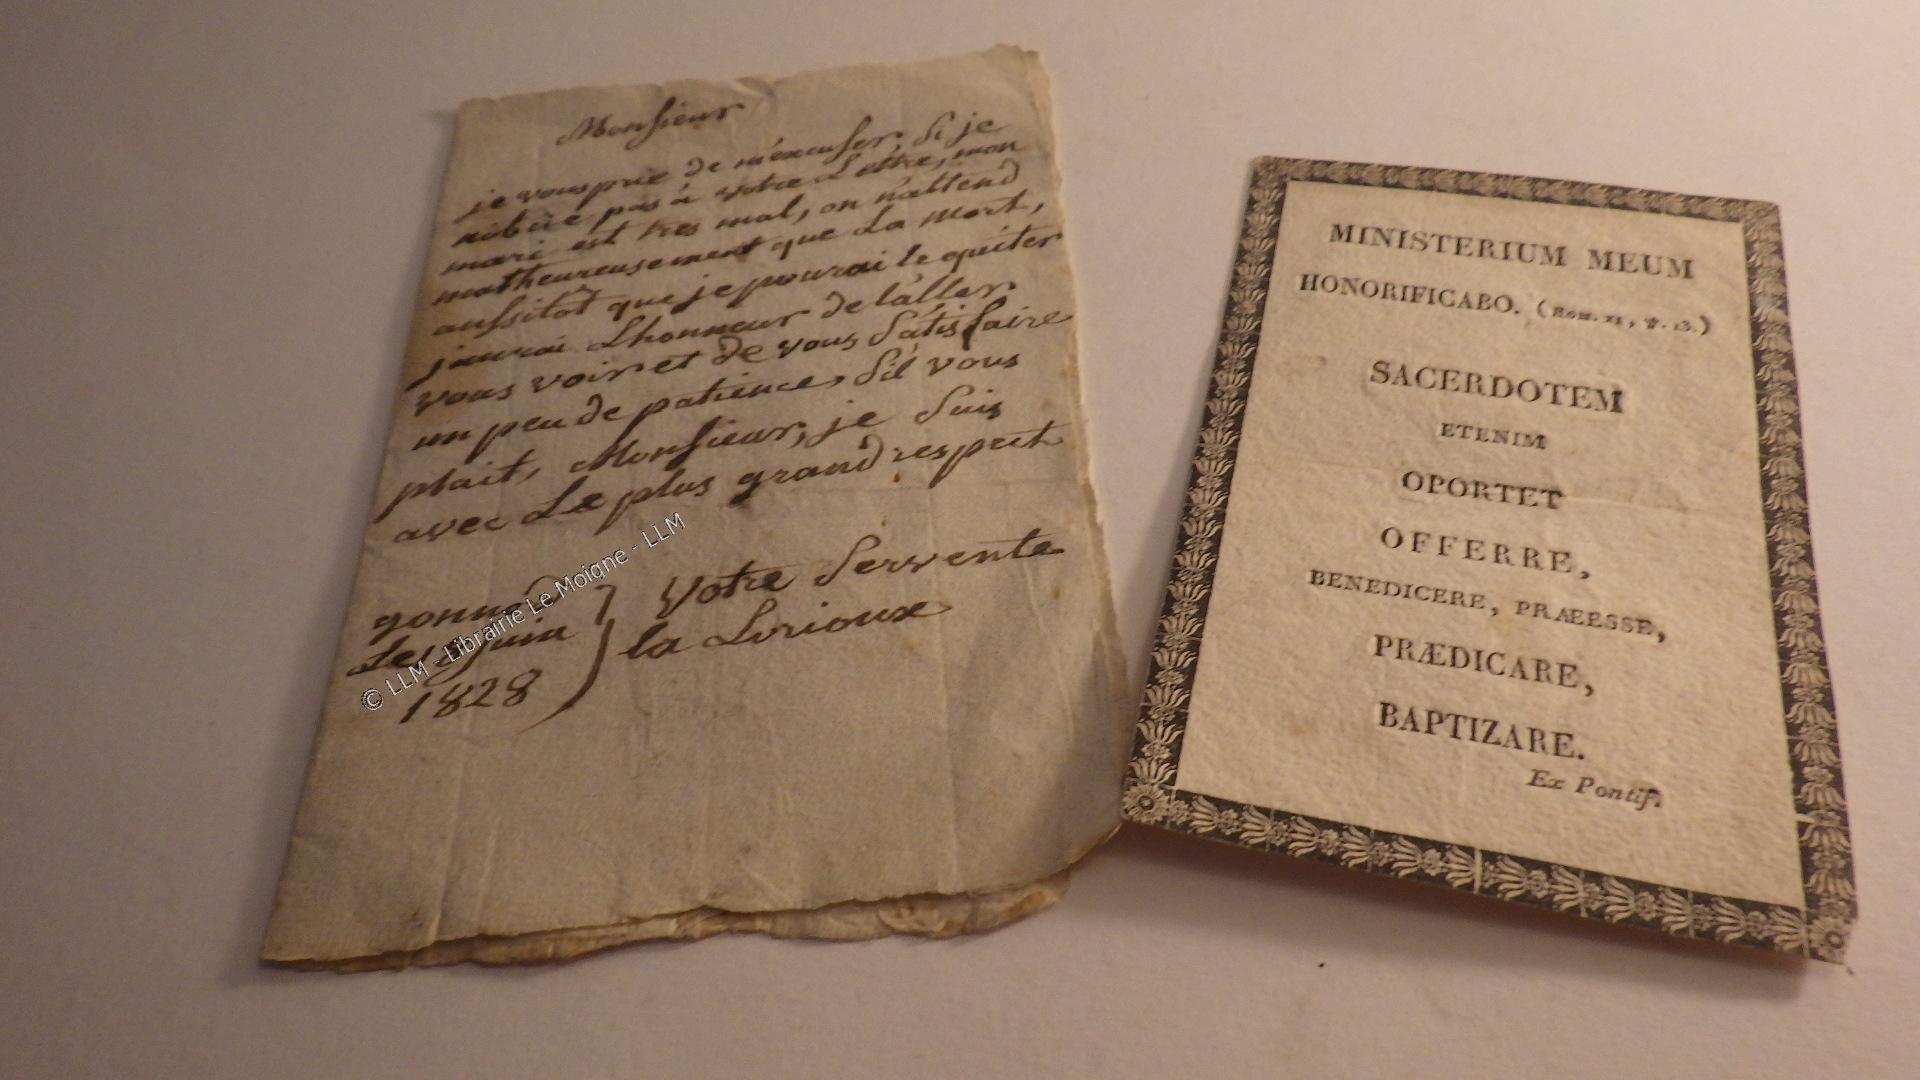 Monsieur
je vous prie de m'excuser, Si je
n'obeïe pas à votre Lettre, mon
mari est tres mal, on n'attend
malheureusement que La mort,
aussitôt que je pourai le quiter
j'aurai Lhonneur de l'aller
vous voir et de vous Satisfaire
un peu de patience, S'il vous
plait, Monsieur, je Suis
avec Le plus grand respect
Votre Servente
la Lorioux
Le Juin
1828
© LLM - Librairie Le Moigne - LLM
MINISTERIUM MEUM
HONORIFICABO. (Rom. XI, ℣. 13.)
SACERDOTEM
ETENIM
OPORTET
OFFERRE,
BENEDICERE, PRAEESSE,
PRÆDICARE,
BAPTIZARE.
Ex Pontif.